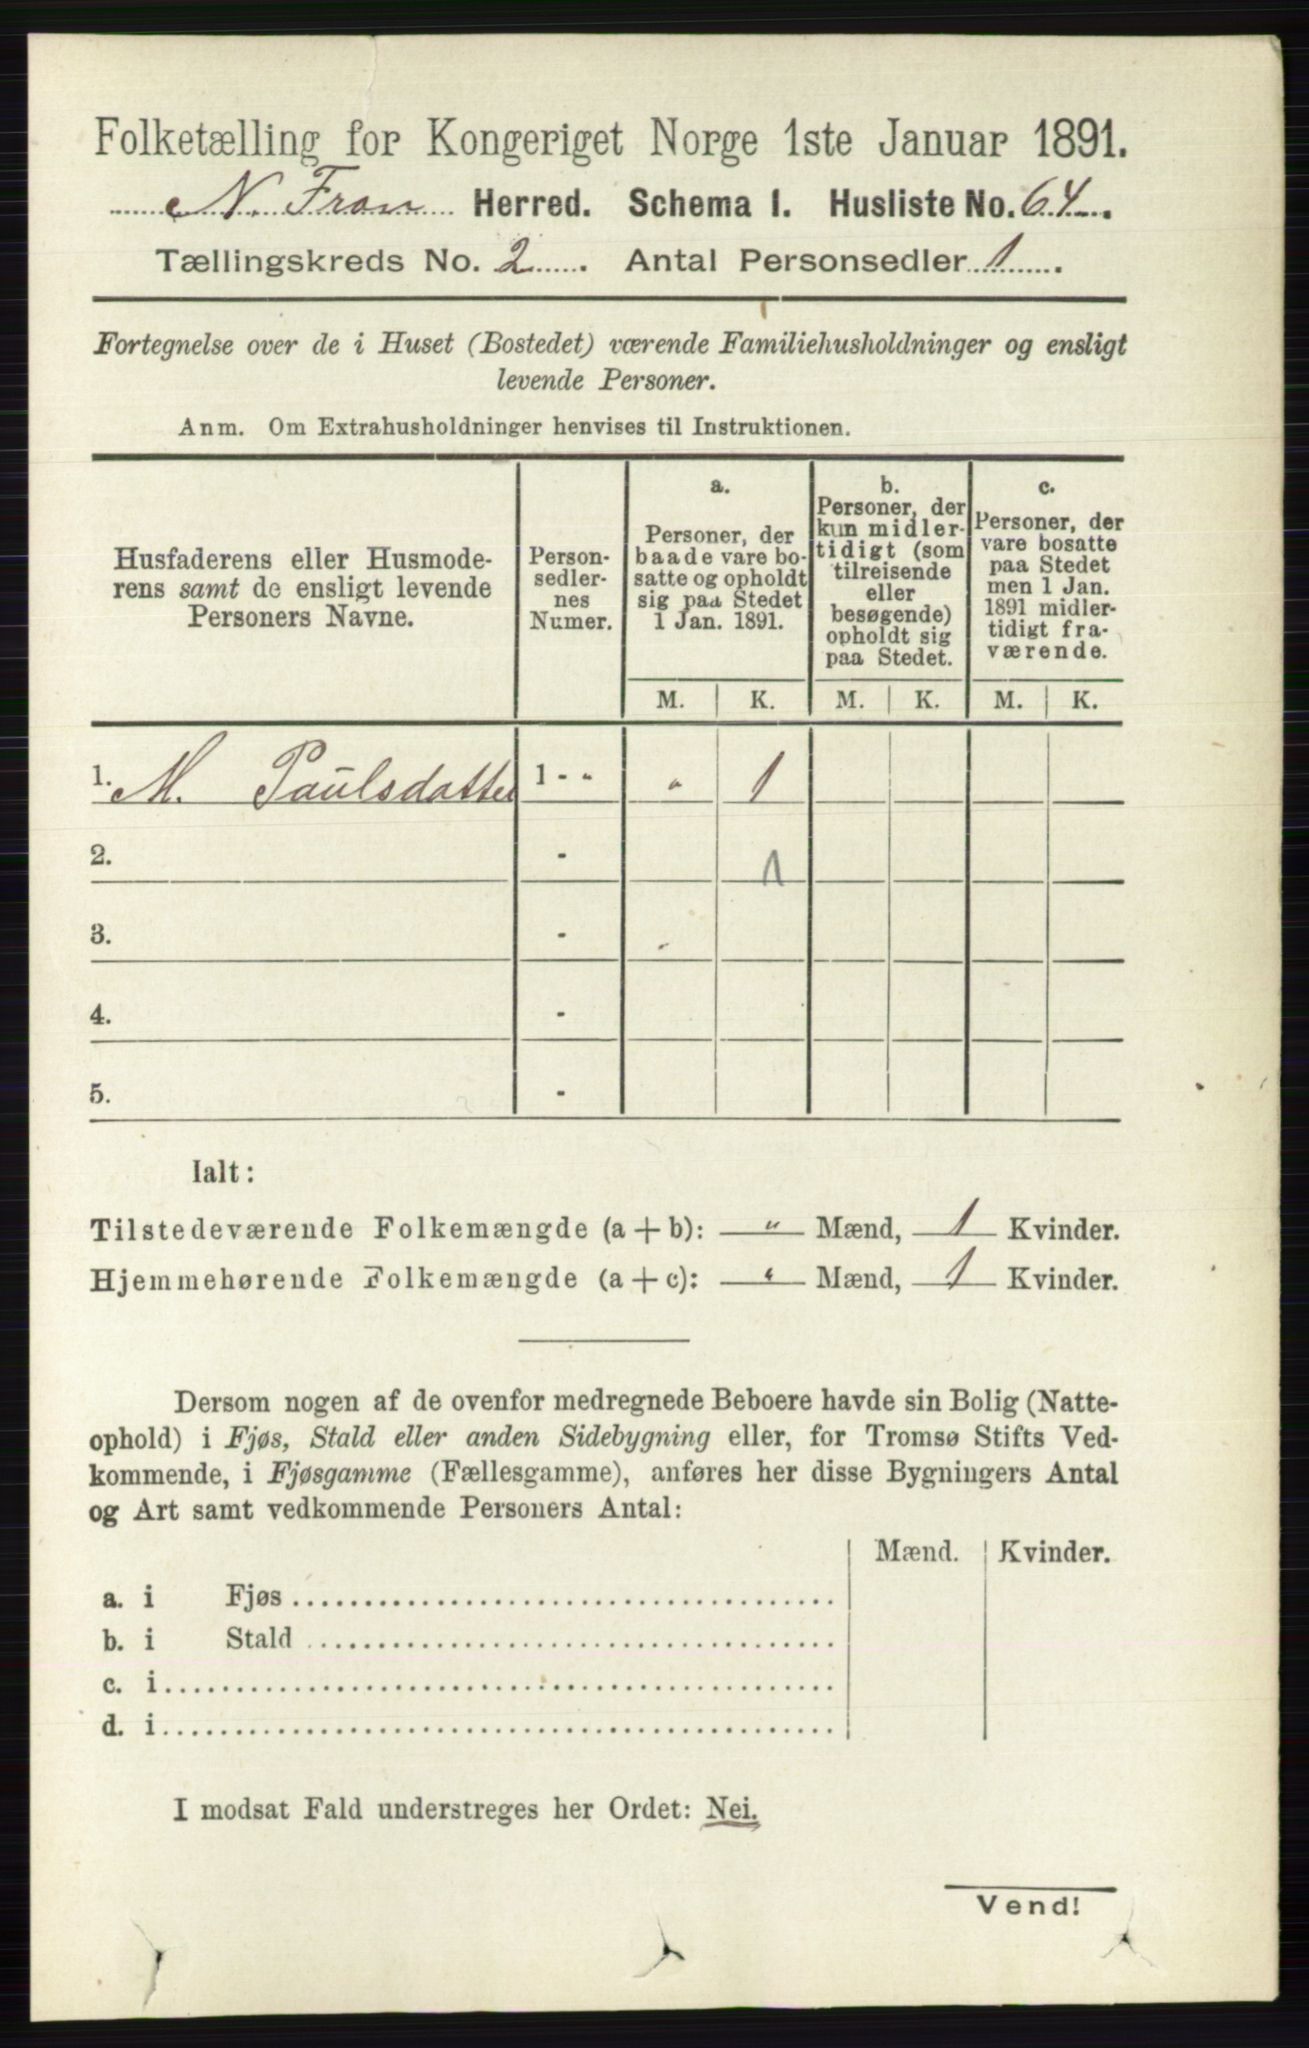 Folketælling for Kongeriget Norge 1ste Januar 1891.
N. Fron Herred. Schema I. Husliste No. 64.
Tællingskreds No. 2. Antal Personsedler 1.
Fortegnelse over de i Huset (Bostedet) værende Familiehusholdninger og ensligt
levende Personer.
Anm. Om Extrahusholdninger henvises til Instruktionen.
Husfaderens eller Husmode-
rens samt de ensligt levende
Personers Navne.
Person-
sedler-
nes
Numer.
a.
Personer, der
baade vare bo-
satte og opholdt
sig paa Stedet
1 Jan. 1891.
b.
Personer, der
kun midler-
tidigt (som
tilreisende
eller
besøgende)
opholdt sig
paa Stedet.
c.
Personer, der
vare bosatte
paa Stedet
men 1 Jan.
1891 midler-
tidigt fra-
værende.
M. K. M. K. M. K.
1. M. Paulsdatter 1 - " " 1
2. - 1
3. -
4. -
5. -
Ialt:
Tilstedeværende Folkemængde (a + b): " Mænd, 1 Kvinder.
Hjemmehørende Folkemængde (a + c): " Mænd, 1 Kvinder.
Dersom nogen af de ovenfor medregnede Beboere havde sin Bolig (Natte-
ophold) i Fjøs, Stald eller anden Sidebygning eller, for Tromsø Stifts Ved-
kommende, i Fjøsgamme (Fællesgamme), anføres her disse Bygningers Antal
og Art samt vedkommende Personers Antal:
Mænd. Kvinder.
a. i Fjøs
b. i Stald
c. i
d. i
I modsat Fald understreges her Ordet: Nei.
Vend!